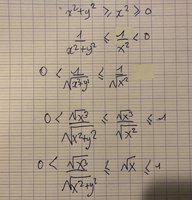 x²+y² ⩾ x² ⩾ 0
1/(x²+y²) ⩽ 1/x² < 0
0 < 1/√(x²+y²) ⩽ 1/√x²
0 < √x³/√(x²+y²) ⩽ √x³/√x² ⩽ 1
0 < √x³/√(x²+y²) ⩽ √x ⩽ 1